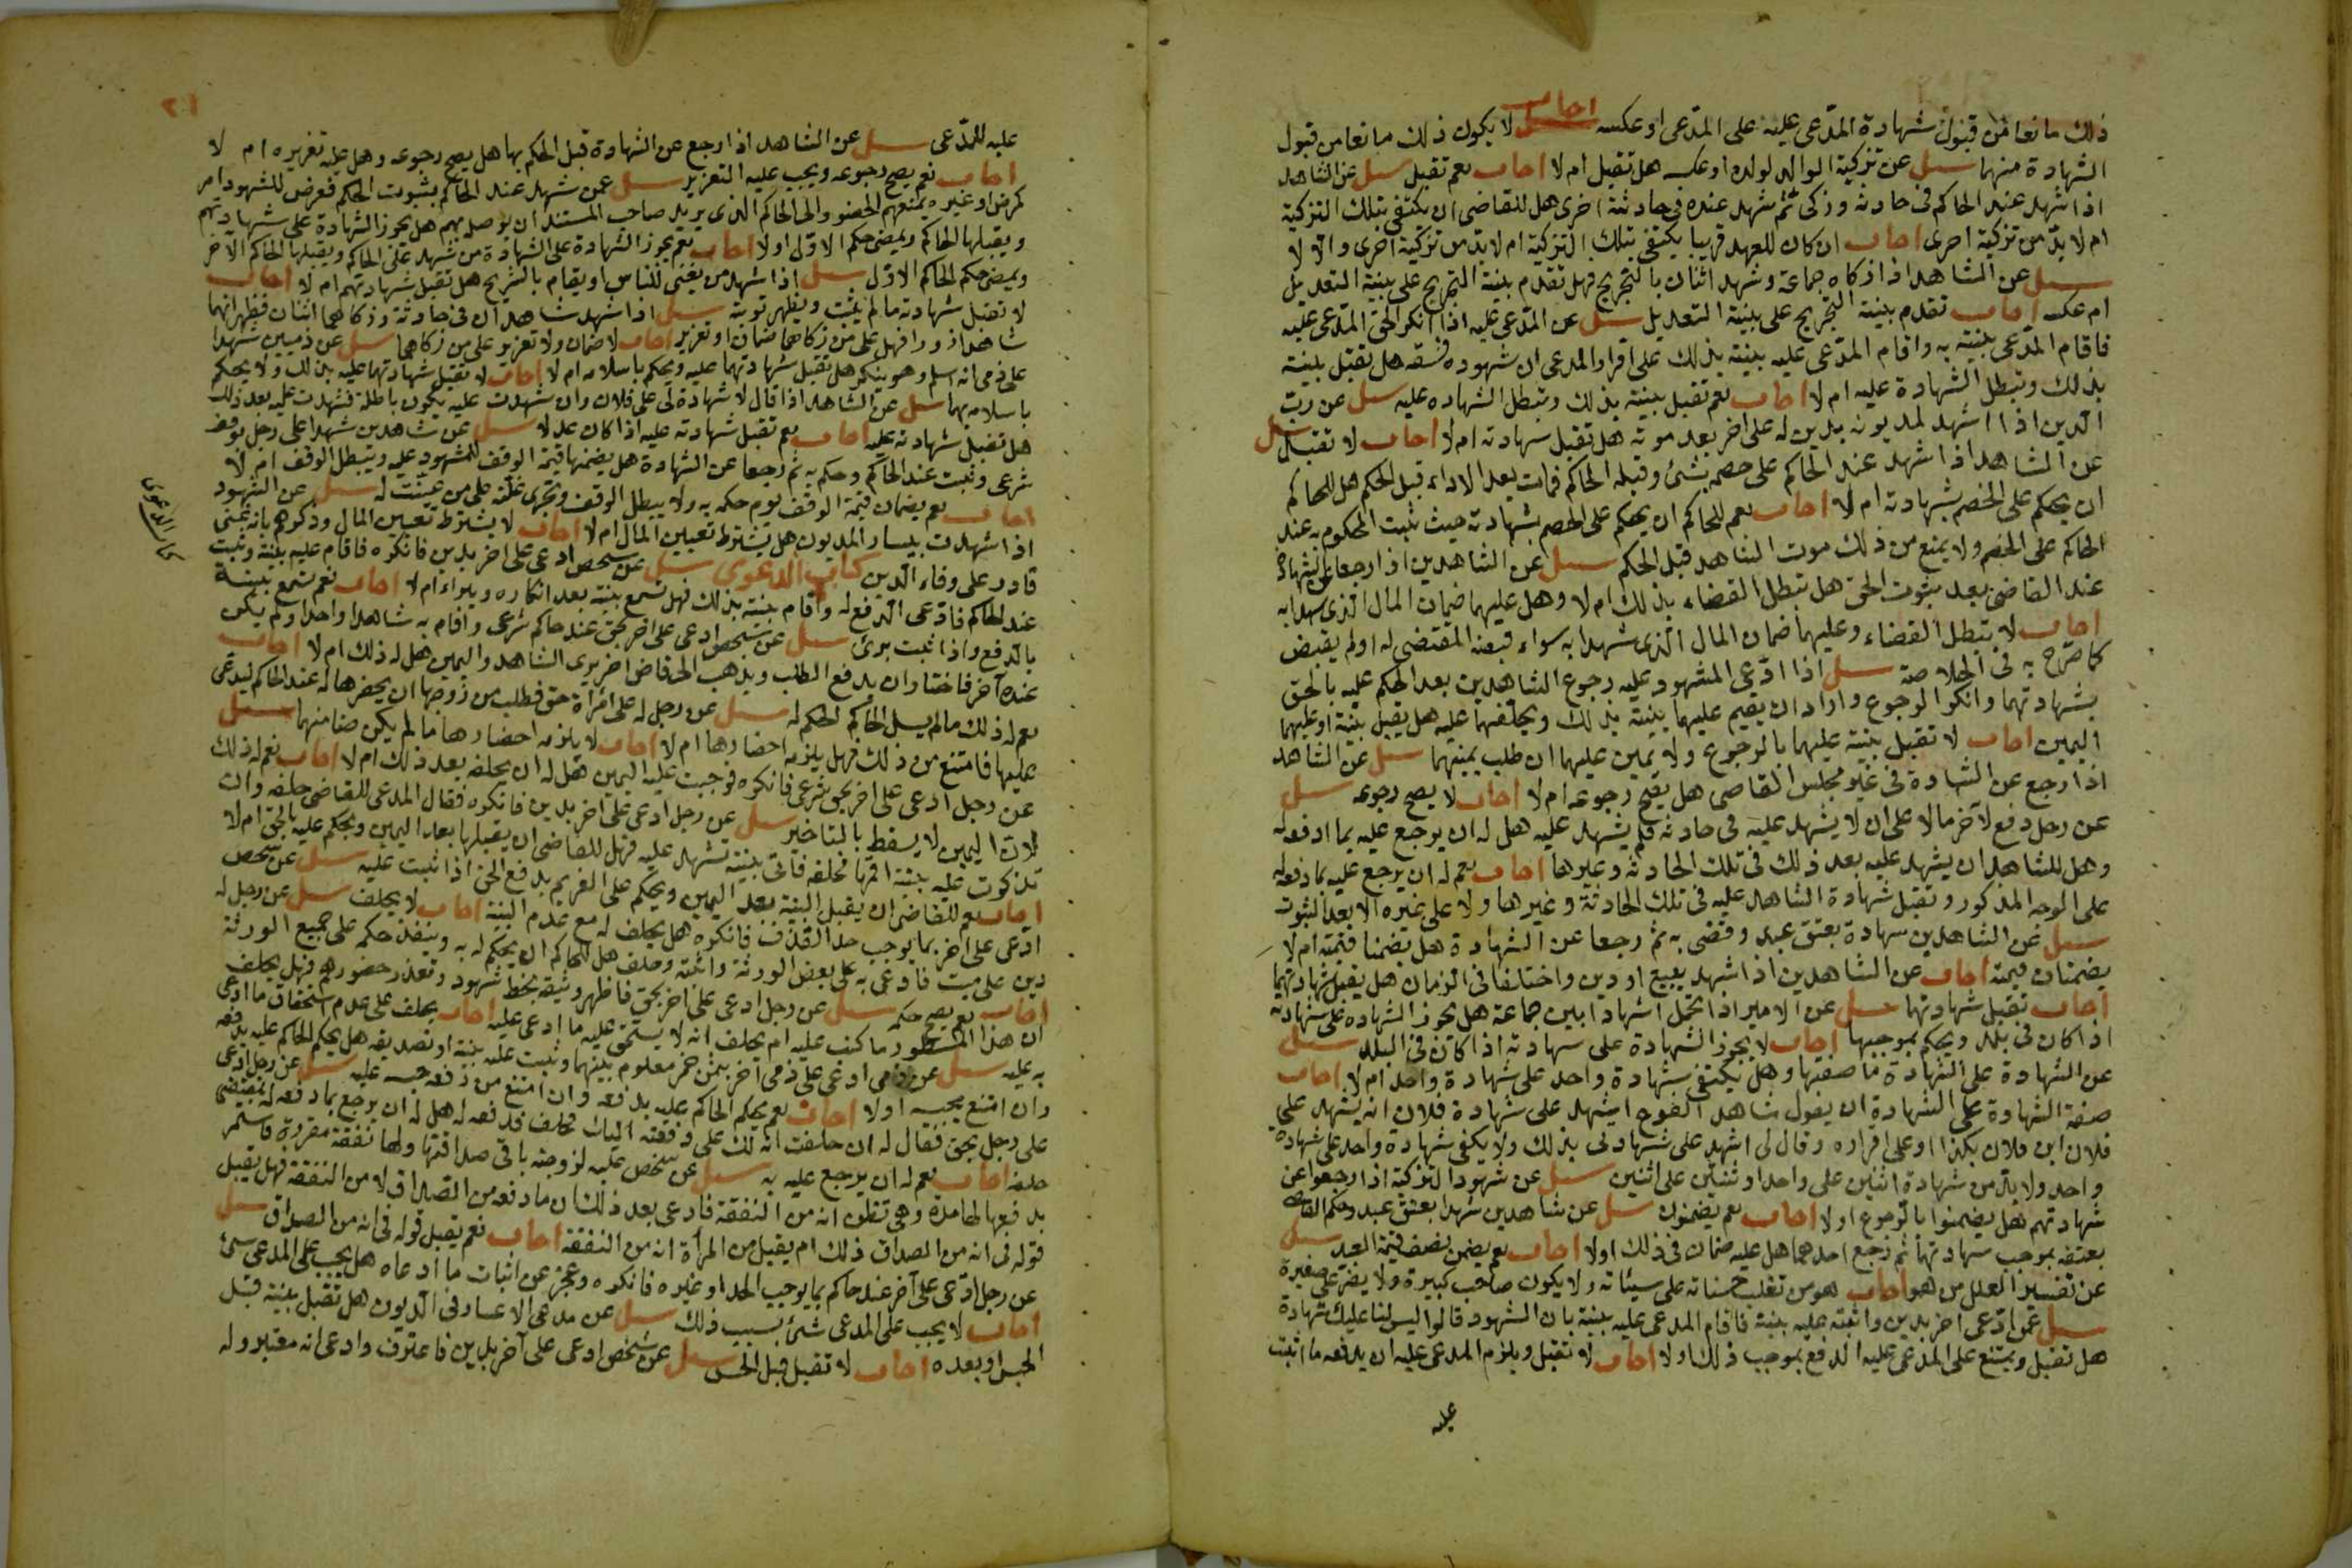 ذلك مانعا من قبول شهادة المدعى عليه على المدعى او عكسه اجاب لا يكون ذلك مانعا من قبول
الشهادة منهما سئل عن تزكية الوالد لولده او عكسه هل تقبل ام لا اجاب نعم تقبل سئل عن الشاهد
اذا شهد عند الحاكم فى حادثة وزكى ثم شهد عنده فى حادثة اخرى هل للقاضى ان يكتفى بتلك التزكية
ام لا بد من تزكية اخرى اجاب ان كان للعهد قريبا يكتفى بتلك التزكية ام لا بد من تزكية اخرى والا لا
سئل عن الشاهد اذا زكاه جماعة وشهد اثنان بالتجريح فهل تقدم بينة التجريح على بينة التعديل
ام عكسه اجاب تقدم بينة التجريح على بينة التعديل سئل عن المدعى عليه اذا انكر الحق المدعى عليه
فاقام المدعى بينة به واقام المدعى عليه بينة بذلك على اقرار المدعى ان شهوده فسقه هل تقبل بينة
بذلك وتبطل الشهادة عليه ام لا اجاب نعم تقبل بينة بذلك وتبطل الشهاده عليه سئل عن رب
الدين اذا اشهد لمديونه بدين له على اخر بعد موته هل تقبل شهادته ام لا اجاب لا تقبل سئل
عن الشاهد اذا شهد عند الحاكم على خصم بشئ وقبله الحاكم فمات بعد الاداء قبل الحكم هل للحاكم
ان يحكم على الخصم بشهادته ام لا اجاب نعم للحاكم ان يحكم على الخصم بشهادته حيث ثبت المحكوم به عند
الحاكم على الخصم ولا يمنع من ذلك موت الشاهد قبل الحكم سئل عن الشاهدين اذا رجعا عن الشهادة
عند القاضى بعد ثبوت الحق هل تبطل القضاء بذلك ام لا وهل عليهما ضمان المال الذى شهدا به
اجاب لا يبطل القضاء وعليهما ضمان المال الذى شهدا به سواء قبضه المقتضى له او لم يقبض
كما صرح به فى الخلاصة سئل اذا ادعى المشهود عليه رجوع الشاهدين بعد الحكم عليه بالحق
بشهادتهما وانكرا الرجوع واراد ان يقيم عليهما بينة بذلك ويحلفهما عليه هل يقبل بينة او عليهما
اليمين اجاب لا تقبل بينة عليهما بالرجوع ولا يمين عليهما ان طلب يمينهما سئل عن الشاهد
اذا رجع عن الشهادة فى غير مجلس القاضى هل يصح رجوعه ام لا اجاب لا يصح رجوعه سئل
عن رجل دفع لآخر مالا على ان لا يشهد عليه فى حادثه فلم يشهد عليه هل له ان يرجع عليه بما ادفعه
وهل للشاهد ان يشهد عليه بعد ذلك فى تلك الحادثه وغيرها اجاب نعم له ان يرجع عليه بما دفعه له
على الوجه المذكور وتقبل شهادة الشاهد عليه فى تلك الحادثة وغيرها ولا على غيره الا بعد الثبوت
سئل عن الشاهدين شهادة بعتق عبد وقضى به ثم رجعا عن الشهادة هل يضمنا قيمته ام لا
يضمنان قيمته اجاب عن الشاهدين اذا شهد ببيع او دين واختلفا فى الزمان هل يقبل شهادتهما
اجاب تقبل شهادتهما سئل عن الامير اذا تحمل اشهادا بين جماعة هل يجوز الشهاده على شهادته
اذا كان فى بلد ويحكم بموجبها اجاب لا يجوز الشهادة على شهادته اذا كان فى البلد سئل
عن الشهادة على الشهادة ما صفتها وهل يكتفى بشهادة واحد على شهادة واحد ام لا اجاب
صفة الشهادة على الشهادة ان يقول شاهد الفرع اشهد على شهادة فلان انه يشهد على
فلان ابن فلان بكذا او على اقراره وقال لى اشهد على شهادتى بذلك ولا يكفى شهادة واحد على شهادة
واحد ولا بد من شهادة اثنين على واحد او ثنتين على اثنين سئل عن شهود التزكية اذا رجعوا عن
شهادتهم هل يضمنوا بالرجوع او لا اجاب نعم يضمنون سئل عن شاهدين شهدا بعتق عبد وحكم القاضى
بعتقه بموجب شهادتهما ثم رجع احدهما هل عليه ضمان فى ذلك او لا اجاب نعم يضمن نصف قيمة العبد سئل
عن تفسير العدل من هو اجاب هو من تغلب حسناته على سيئاته ولا يكون صاحب كبيرة ولا يصر على صغيرة
سئل عمن ادعى اخر بدين واثبته عليه بينة فاقام المدعى عليه بينة بان الشهود قالوا ليس لنا عليك شهادة
هل تقبل ويمتنع على المدعى عليه الدفع بموجب ذلك او لا اجاب لا تقبل ويلزم المدعى عليه ان يدفعه ما اثبت
عليه
٢١
عليه للمدعى سئل عن الشاهد اذا رجع عن الشهادة قبل الحكم بها هل يصح رجوعه وهل عليه تعزيره ام لا
اجاب نعم يصح رجوعه ويجب عليه التعزير سئل عمن شهد عند الحاكم بثبوت الحكم فعرض للمشهود امر
كمرض او غيره يمنعهم الحضور الى الحاكم الذى يريد صاحب المستند ان يوصل بهم هل يجوز الشهادة على شهادتهم
ويقبلها الحاكم ويمضى حكم الاول او لا اجاب نعم يجوز الشهادة على الشهادة من شهد على الحاكم ويقبلها الحاكم الآخر
ويمضى حكم الحاكم الاول سئل اذا شهد من يغنى للناس او يقام بالتشريح هل تقبل شهادتهم ام لا اجاب
لا تقبل شهادته ما لم يثبت ويظهر توبته سئل اذا شهد شاهدان فى حادثة وزكاهما اثنان فظهر انهما
شاهدا زور فهل على من زكاهما ضمان او تعزير اجاب لا ضمان ولا تعزير على من زكاهما سئل عن ذميين شهدا
على ذمى انه اسلم وهو ينكر هل تقبل شهادتهما عليه ويحكم باسلامه ام لا اجاب لا تقبل شهادتهما عليه بذلك ولا يحكم
باسلامه بهما سئل عن الشاهد اذا قال لا شهادة لى على فلان وان شهدت عليه يكون باطلة فشهدت عليه بعد ذلك
هل تقبل شهادته عليه اجاب نعم تقبل شهادته عليه اذا كان عدلا سئل عن شاهدين شهدا على رجل بوقف
شرعى وثبت عند الحاكم وحكم به ثم رجعا عن الشهادة هل يضمنها قيمة الوقف للمشهود عليه ويبطل الوقف ام لا
اجاب نعم يضمان قيمة الوقف يوم حكمه به ولا يبطل الوقف ويجرى غلته على من عينت له سئل عن الشهود
اذا شهدت بيسار المديون هل يشترط تعيين المال ام لا اجاب لا يشترط تعيين المال وذكرهم بانه غنى
قادر على وفاء الدين كتاب الدعوى سئل عن شخص ادعى على اخر بدين فانكره فاقام عليه بينة وثبت
كتاب الدعوى
عند الحاكم فادعى الدفع له واقام بينة بذلك فهل تسمع بينة بعد انكاره ويبراء ام لا اجاب نعم تسمع بينة
بالدفع واذا ثبت برئ سئل عن شخص ادعى على اخر بحق عند حاكم شرعى واقام به شاهدا واحدا ولم يكن
عنده آخر فاختار ان يدفع الطلب ويذهب الى قاض اخر يرى الشاهد واليمين هل له ذلك ام لا اجاب
نعم له ذلك ما لم يسل الحاكم الحكم له سئل عن رجل له على امرأة حق فطلب من زوجها ان يحضرها له عند الحاكم ليدعى
عليها فامتنع من ذلك فهل يلزمه احضارها ام لا اجاب لا يلزمه احضارها ما لم يكن ضامنها سئل
عن رجل ادعى على اخر بحق شرعى فانكره فوجبت عليه اليمين هل له ان يحلفه بعد ذلك ام لا اجاب نعم له ذلك
لان اليمين لا يسقط بالتاخير سئل عن رجل ادعى على اخر بدين فانكره فقال المدعى للقاضى حلفه وان
تذكرت عليه بينة اقمها فحلفه فاتى بينة تشهد عليه فهل للقاضى ان يقبلها بعد اليمين ويحكم عليه بالحق ام لا
اجاب نعم للقاضى ان يقبل البينة بعد اليمين ويحكم على الغريم بدفع الحق اذا ثبت عليه سئل عن شخص
ادعى على اخر بما يوجب حد القذف فانكره هل يحلف له مع عدم البينة اجاب لا يحلف سئل عن رجل له
دين على ميت فادعى به على بعض الورثة واثبته وحلف هل للحاكم ان يحكم له به وينفذ حكمه على جميع الورثة
اجاب نعم يصح حكمه سئل عن رجل ادعى على اخر بحق فاظهر وثيقة بخط شهود وتعذر حضورهم فهل يحلف
ان هذا المسطور ما كتب عليه ام يحلف انه لا يستحق عليه ما ادعى عليه اجاب يحلف على عدم استحقاق ما ادعى
به عليه سئل عن ذمى ادعى على ذمى آخر بثمن خمر معلوم بينهما وثبت عليه بينة او تصديقه هل يحكم الحاكم عليه بدفعه
وان امتنع يحبسه او لا اجاب نعم يحكم الحاكم عليه بدفعه وان امتنع من دفعه حبسه عليه سئل عن رجل ادعى
على رجل بحق فقال له ان حلفت انه لك على دفعته اليك فحلف فدفعه له هل له ان يرجع بما دفعه له بمقتضى
حلفه اجاب نعم له ان يرجع عليه به سئل عن شخص عليه لزوجته باقى صداقتها ولها نفقة مقررة فاستمر
يدفعها لها مدة وهى تظن انه من النفقة فادعى بعد ذلك ان ما دفعه من الصداق لا من النفقة فهل يقبل
قوله فى انه من الصداق ذلك ام يقبل من المرأة انه من النفقة اجاب نعم يقبل قوله فى انه من الصداق سئل
عن رجل ادعى على آخر عند حاكم بما يوجب الحد او غيره فانكره وعجز عن اثبات ما ادعاه هل يجب على المدعى شئ
اجاب لا يجب على المدعى شئ بسبب ذلك سئل عن مدعى الاعسار فى الديون هل تقبل بينة قبل
الحبس او بعده اجاب لا تقبل قبل الحبس سئل عن شخص ادعى على آخر بدين فاعترف وادعى انه معتبر وله